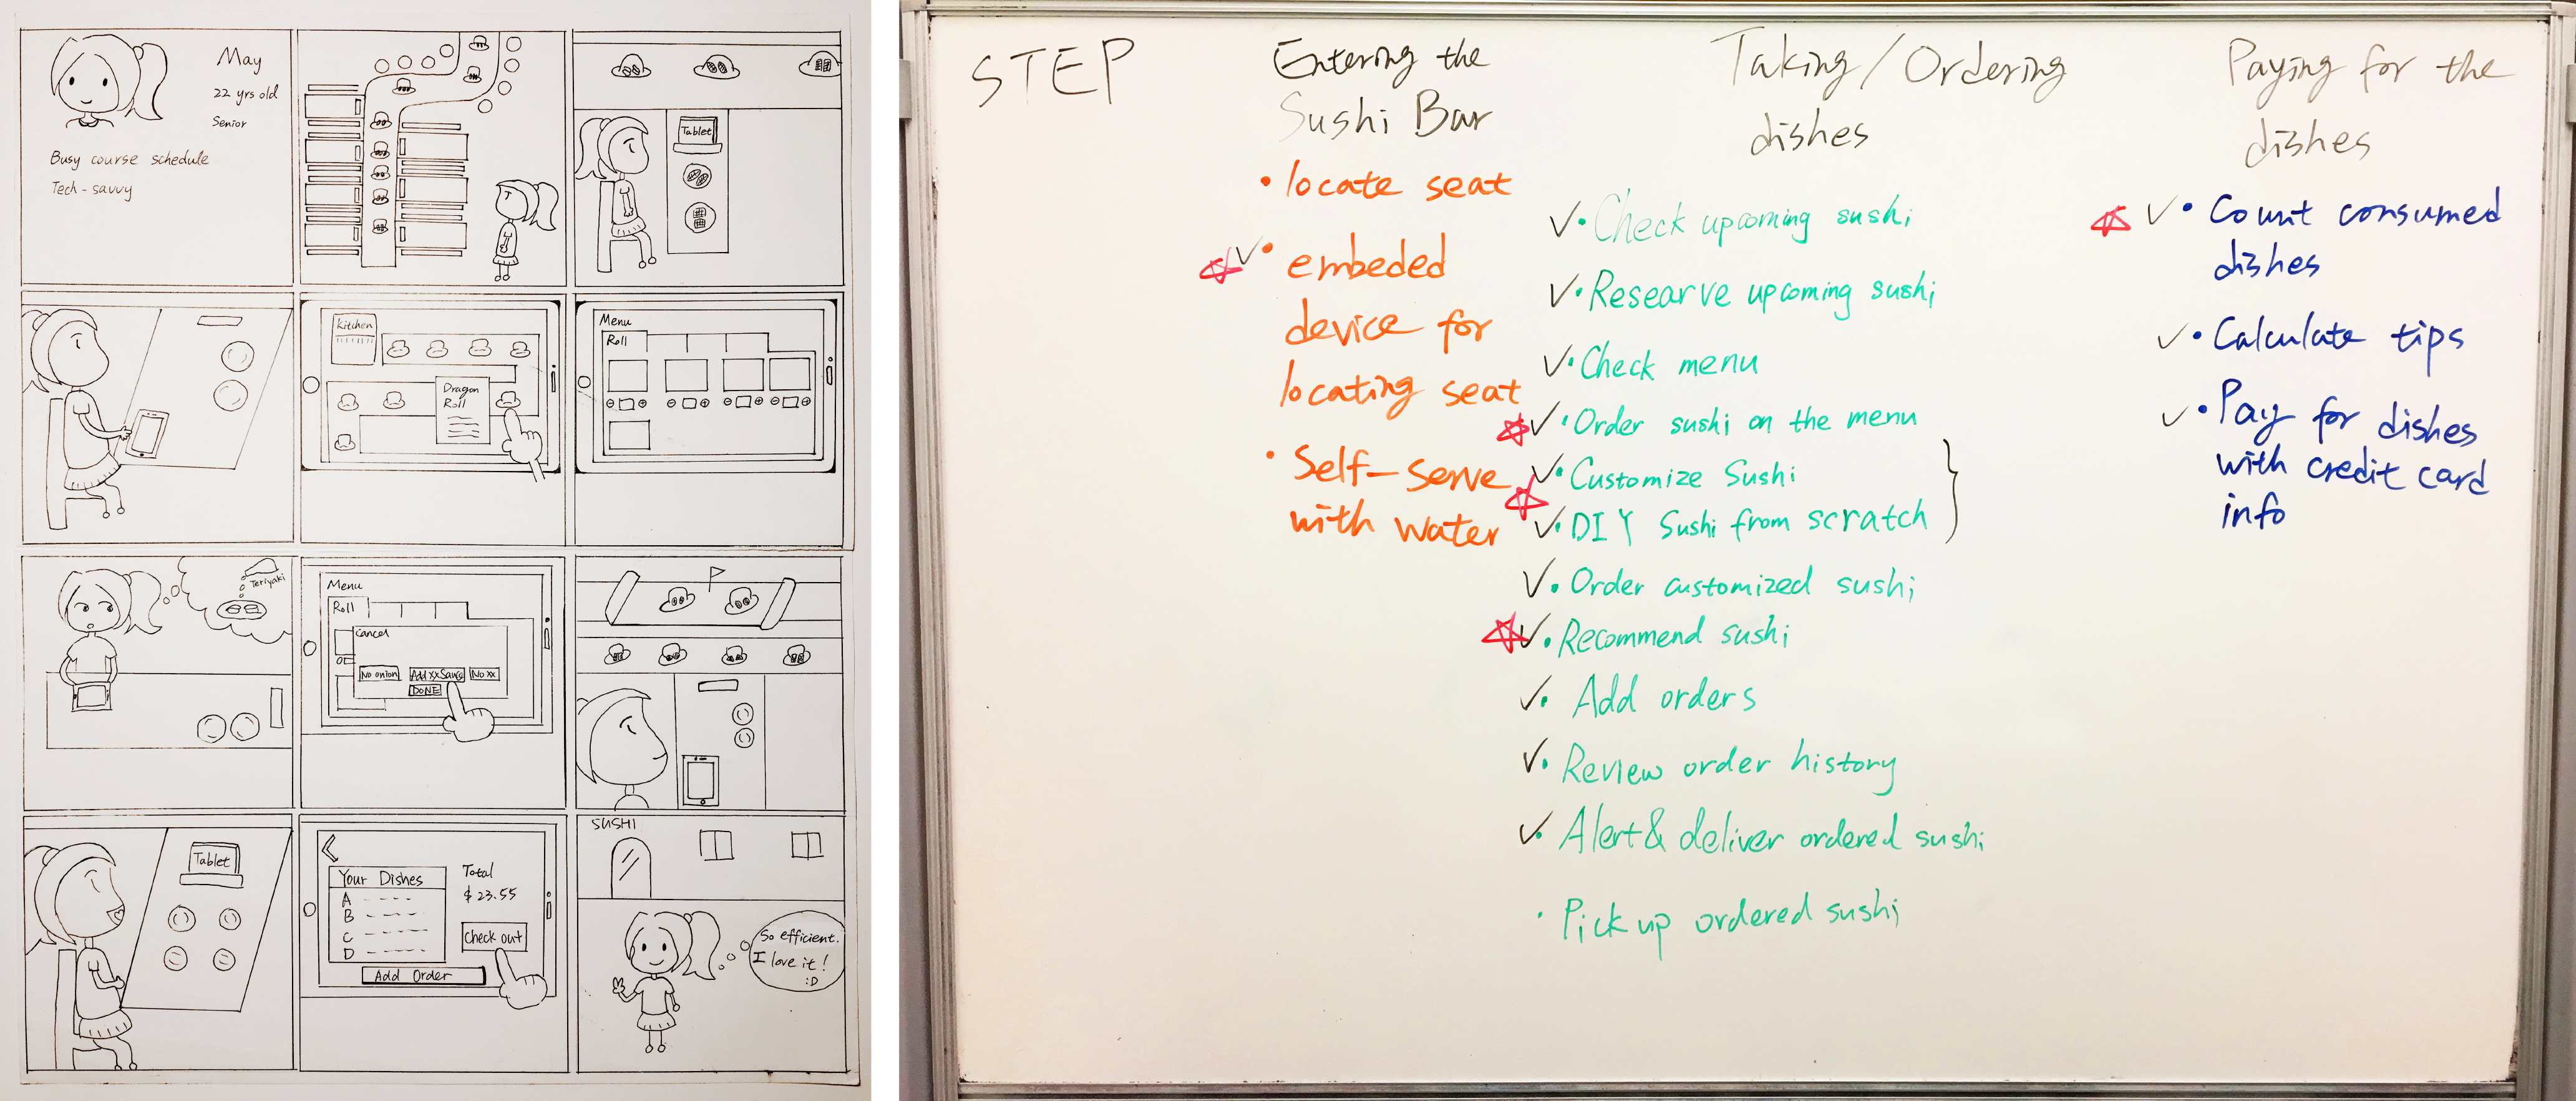 May
22 yrs old
Senior
Busy course schedule
Tech-savvy
Tablet
Kitchen
Dragon
Roll
Menu
Roll
Teriyaki
Menu
Roll
Cancel
No onion
Add xx
No xx
DONE
Tablet
Your Dishes
A
B
C
D
Total
$ 23.55
Check out
Add Order
SUSHI
So efficient.
I love it!
:D
STEP
Entering the
Sushi Bar
• locate seat
✓• embeded
device for
locating seat
• Self-serve
with water
Taking/Ordering
dishes
✓• Check upcoming sushi
✓• Researve upcoming sushi
✓• Check menu
✓• Order sushi on the menu
✓• Customize Sushi
✓• DIY Sushi from scratch
✓• Order customized sushi
✓• Recommend sushi
✓• Add orders
✓• Review order history
✓• Alert& deliver ordered sushi
• Pick up ordered sushi
Paying for the
dishes
✓• Count consumed
dishes
✓• Calculate tips
✓• Pay for dishes
with credit card
info